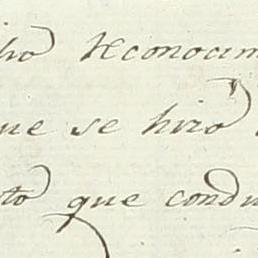 ho Reconocim
ue se hizo
to que condu